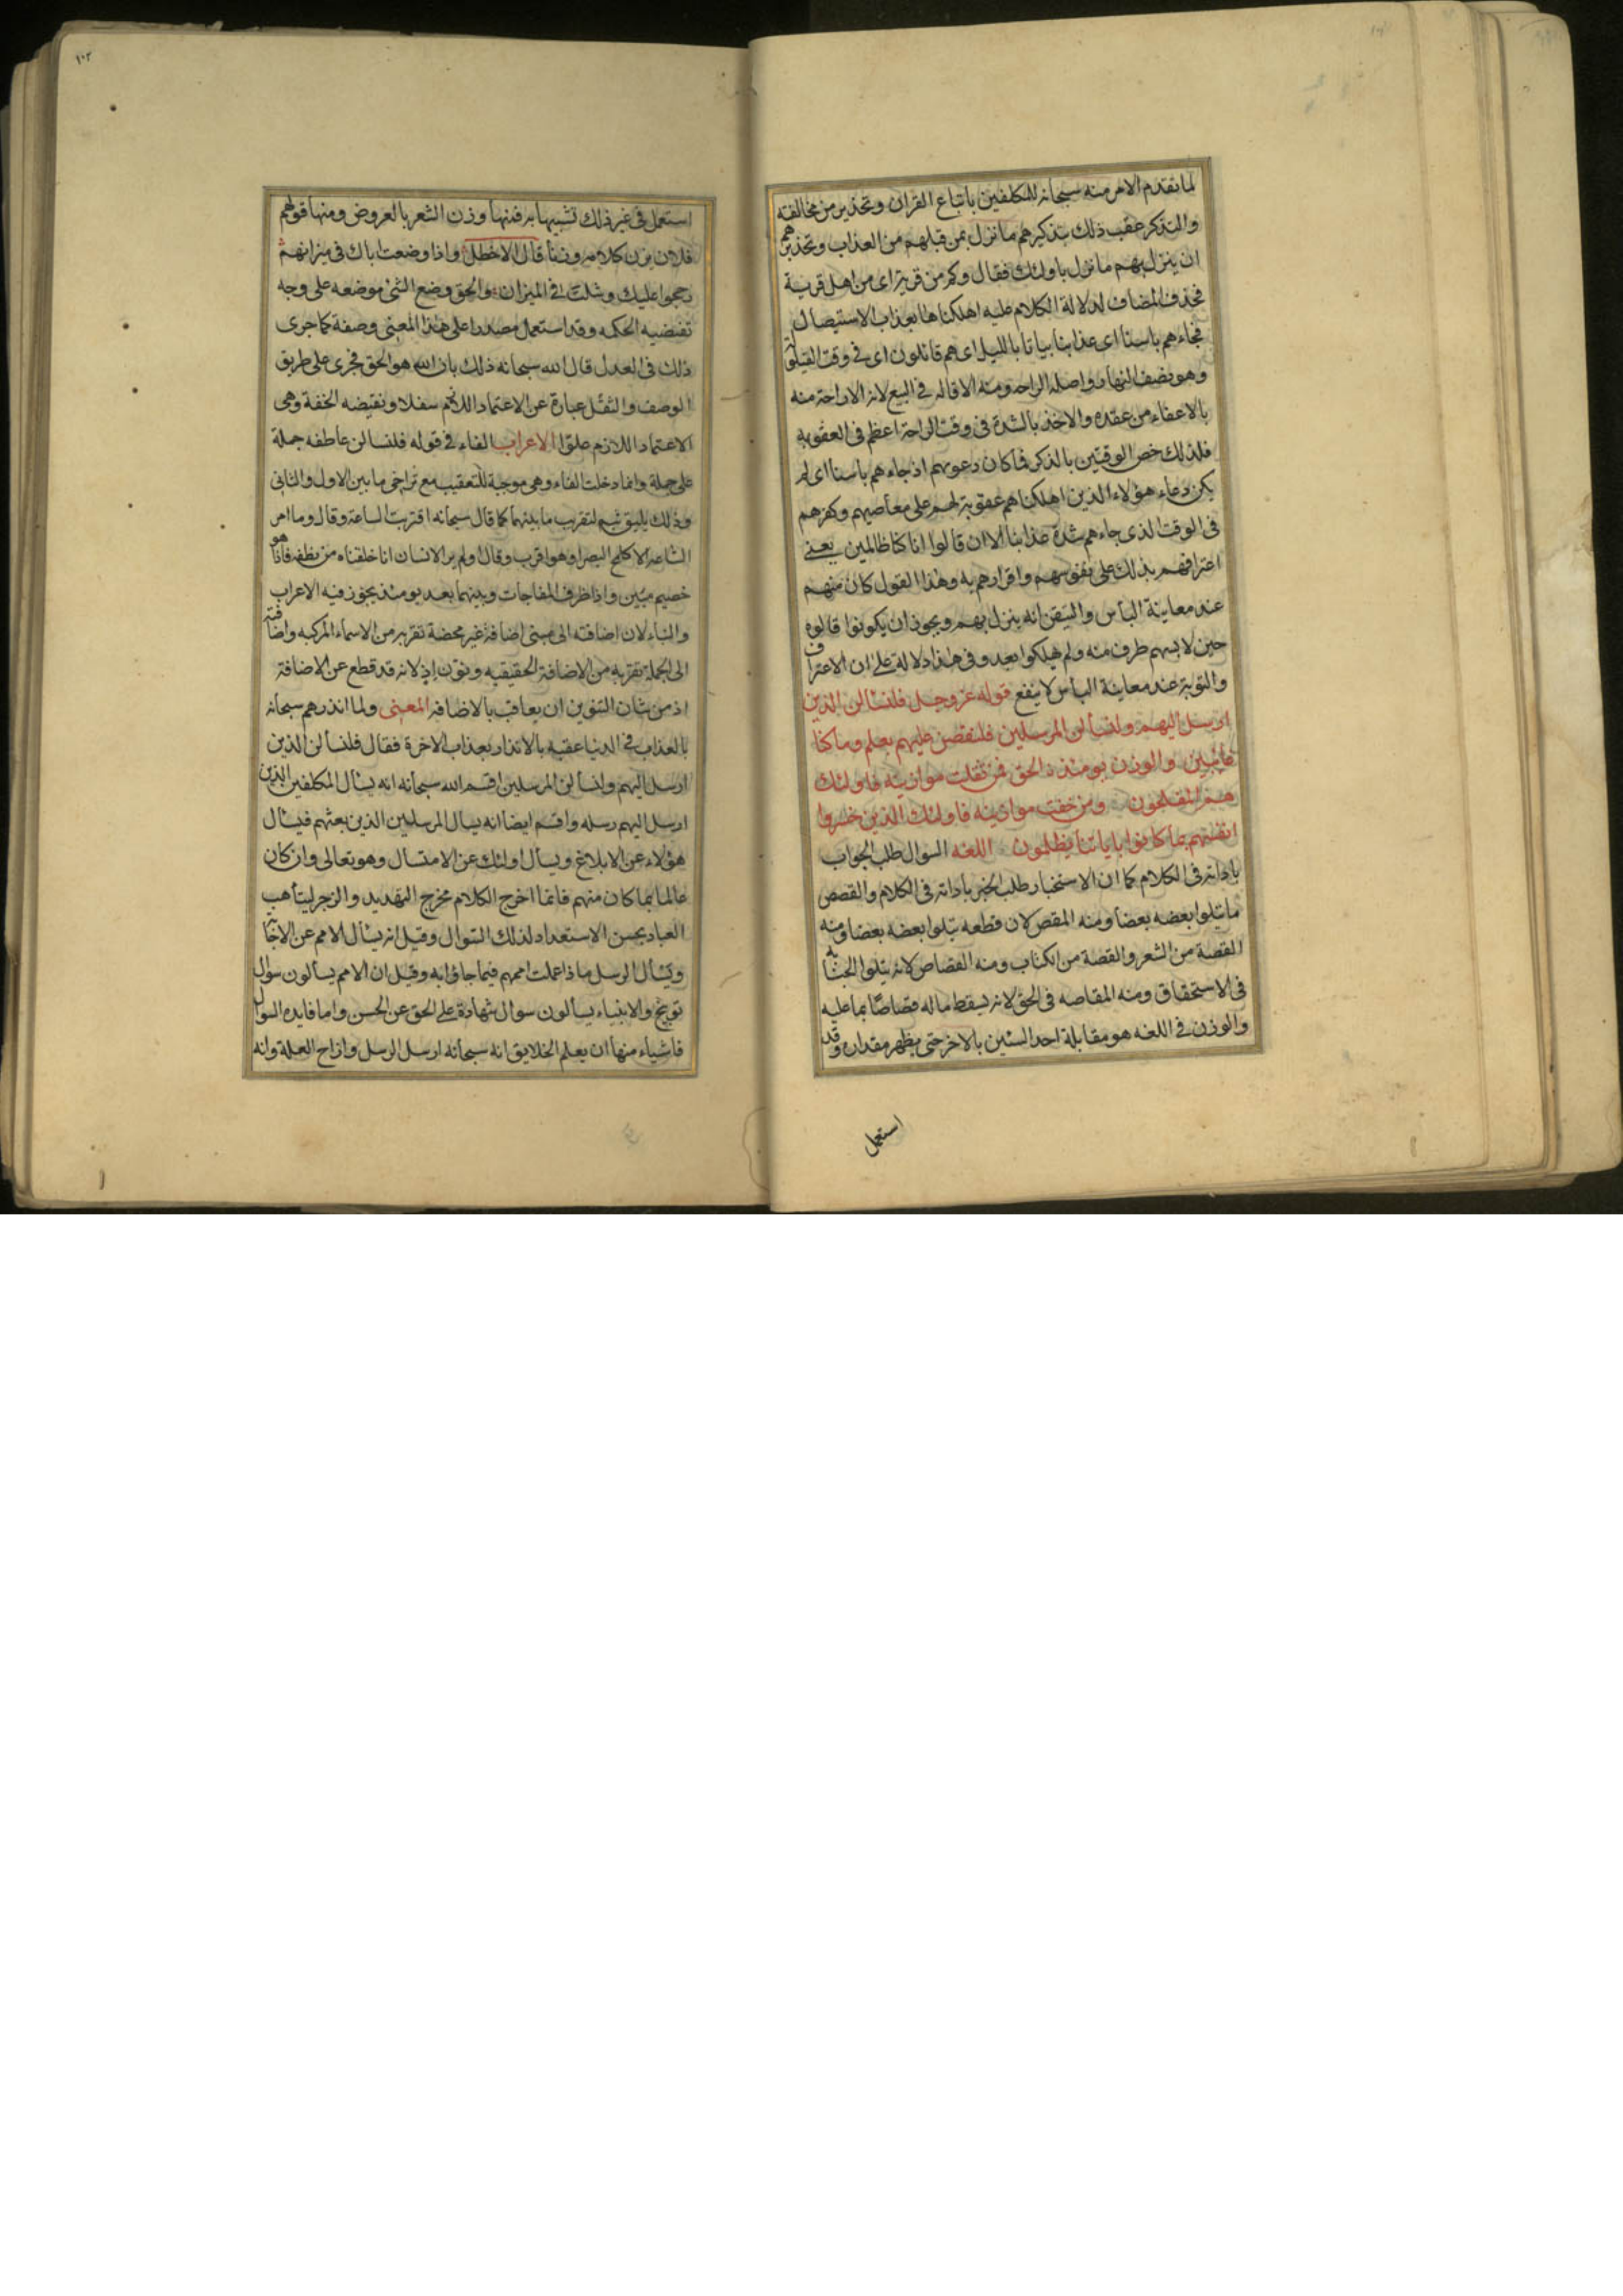 لما تقدم الامر منه سبحانه للمكلفين باتباع القران وتحذير من مخالفته
والتذكر عقب ذلك بتذكيرهم ما نزل بمن قبلهم من العذاب وتحذيرهم
ان ينزل بهم ما نزل باولئك فقال وكم من قرية اى من اهل قرية
فحذف المضاف لدلالة الكلام عليه اهلكناها بعذاب الاستيصال
فجاءهم باسنا اى عذابنا بياتا بالليل اى هم قائلون اى فى وقت القيلولة
وهو نصف النهار واصله الراحه ومنه الاقاله فى البيع لانه الاراحة منه
بالاعفاء من عقده والاخذ بالشدة فى وقت الراحة اعظم فى العقوبه
فلذلك خص الوقتين بالذكر فما كان دعويهم اذ جاءهم باسنا اى لم
يكن دعاء هؤلاء الذين اهلكناهم عقوبة لهم على معاصيهم وكفرهم
فى الوقت الذى جاءهم شدة عذابنا الا ان قالوا انا كنا ظالمين يعنى
اعترافهم بذلك على نفوسهم واقرارهم به وهذا القول كان منهم
عند معاينة الباس والتيقن انه ينزل بهم ويجوز ان يكونوا قالوه
حين لابسهم طرف منه ولم يهلكوا بعد وفى هذا دلالة على ان الاعتراف
والتوبة عند معاينة الباس لا ينفع قوله عز وجل فلنسالن الذين
ارسل اليهم ولنسألن المرسلين فلنقصن عليهم بعلم وما كنا
غائبين والوزن يومئذ ن الحق فمن ثقلت موازينه فاولئك
هم المفلحون ومن خفت موازينه فاولئك الذين خسروا
انفسهم بما كانوا باياتنا يظلمون اللغه السوال طلب الجواب
باداته فى الكلام كما ان الاستخبار طلب الخبر باداته فى الكلام والقصص
ما يتلوا بعضه بعضا ومنه المقص لان قطعه يتلوا بعضه بعضا ومنه
القصة من الشعر والقصة من الكتاب ومنه القصاص لانه يتلوا الجناية
فى الاستحقاق ومنه المقاصه فى الحق لانه يسقط ماله قصاصا بما عليه
والوزن فى اللغه هو مقابلة احد الشئين بالاخر حتى يظهر مقداره وقد
استعمل
١٠٢
استعمل فى غير ذلك تشبيها به فمنها وزن الشعر بالعروض ومنها قولهم
فلان يزن كلامه وزنا قال الاخطل واذا وضعت اباك فى ميزانهم
رجحوا عليك وشلت فى الميزان والحق وضع الشئ موضعه على وجه
تقتضيه الحكمه وقد استعمل مصدرا على هذا المعنى وصفة كما جرى
ذلك فى العدل قال الله سبحانه ذلك بان الله هو الحق فجرى على طريق
الوصف والثقل عبارة عن الاعتماد اللازم سفلا ونقيضه الخفة وهى
الاعتماد اللازم علوا الاعراب الفاء فى قوله فلنسالن عاطفه جملة
على جملة وانما دخلت الفاء وهى موجبة للتعقيب مع تراخى ما بين الاول والثانى
وذلك يليق بثم لتقريب ما بينهما كما قال سبحانه اقتربت الساعة وقال وما امر
الساعه الا كلمح البصر او هو اقرب وقال اولم ير الانسان انا خلقناه من نطفه فاذا هو
خصيم مبين واذا ظرف المفاجات وبينهما بعد يومئذ يجوز فيه الاعراب
والبناء لان اضافته الى مبنى اضافة غير محضة تقربه من الاسماء المركبه واضافته
الى الجملة تقربه من الاضافة الحقيقيه ونون اذ لانه قد قطع عن الاضافة
اذ من شان التنوين ان يعاقب بالاضافه المعنى ولما انذرهم سبحانه
بالعذاب فى الدنيا عقبه بالانذار بعذاب الاخرة فقال فلنسألن الذين
ارسل اليهم ولنسألن المرسلين اقسم الله سبحانه انه يسأل المكلفين الذين
ارسل اليهم رسله واقسم ايضا انه يسال المرسلين الذين بعثهم فيسال
هؤلاء عن الابلاغ ويسأل اولئك عن الامتسال وهو تعالى وان كان
عالما بما كان منهم فانما اخرج الكلام مخرج التهديد والزجر ليتأهب
العباد بحسن الاستعداد لذلك السوال وقيل انه يسأل الامم عن الاجابة
ويسأل الرسل ماذا عملت اممهم فيما جاؤا به وقيل ان الامم يسألون سوال
توبيخ والانبياء يسالون سوال شهادة على الحق عن الحسن واما فايده السوال
فاشياء منها ان يعلم الخلايق انه سبحانه ارسل الرسل وازاح العلة وانه